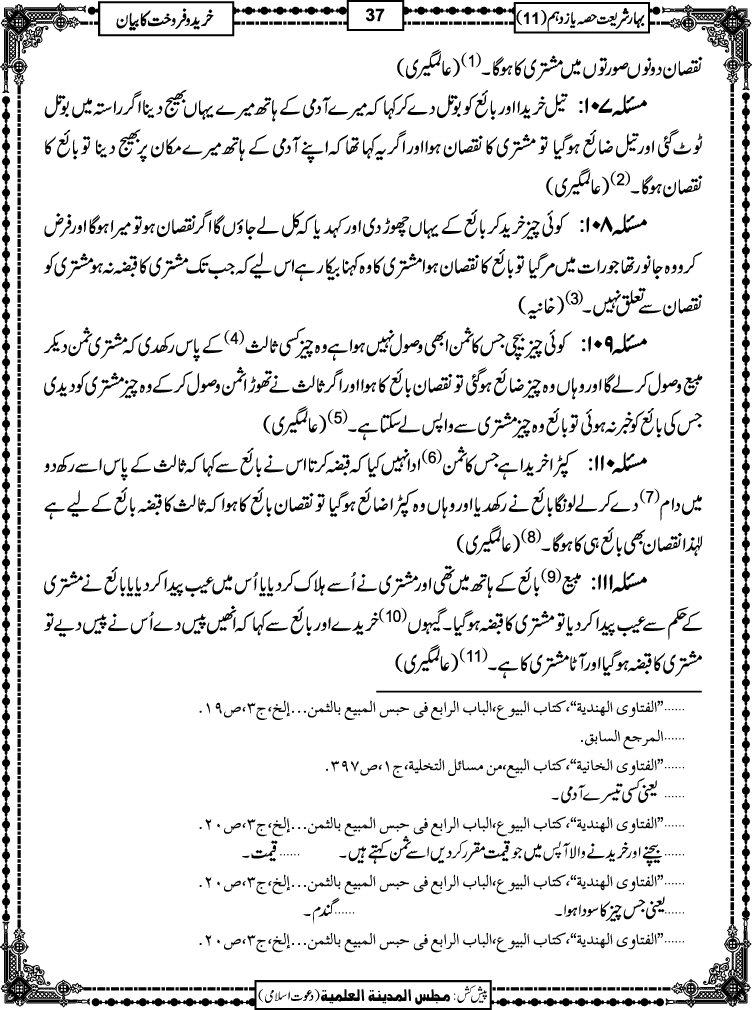 بہار شریعت حصہ یازدہم (11)
37
خرید و فروخت کا بیان
نقصان دونوں صورتوں میں مشتری کا ہوگا۔(1) (عالمگیری)
مسئلہ ۱۰۷: تیل خریدا اور بائع کو بوتل دے کر کہا کہ میرے آدمی کے ہاتھ میرے یہاں بھیج دینا اگر راستہ میں بوتل
ٹوٹ گئی اور تیل ضائع ہوگیا تو مشتری کا نقصان ہوا اور اگر یہ کہا تھا کہ اپنے آدمی کے ہاتھ میرے مکان پر بھیج دینا تو بائع کا
نقصان ہوگا۔(2) (عالمگیری)
مسئلہ ۱۰۸: کوئی چیز خرید کر بائع کے یہاں چھوڑ دی اور کہدیا کہ کل لے جاؤں گا اگر نقصان ہو تو میرا ہوگا اور فرض
کرو وہ جانور تھا جو رات میں مر گیا تو بائع کا نقصان ہوا مشتری کا وہ کہنا بیکار ہے اس لیے کہ جب تک مشتری کا قبضہ نہ ہو مشتری کو
نقصان سے تعلق نہیں۔(3) (خانیہ)
مسئلہ ۱۰۹: کوئی چیز بیچی جس کا ثمن ابھی وصول نہیں ہوا ہے وہ چیز کسی ثالث(4) کے پاس رکھدی کہ مشتری ثمن دیکر
مبیع وصول کرلے گا اور وہاں وہ چیز ضائع ہوگئی تو نقصان بائع کا ہوا اور اگر ثالث نے تھوڑا ثمن وصول کرکے وہ چیز مشتری کو دیدی
جس کی بائع کو خبر نہ ہوئی تو بائع وہ چیز مشتری سے واپس لے سکتا ہے۔(5) (عالمگیری)
مسئلہ ۱۱۰: کپڑا خریدا ہے جس کا ثمن(6) ادا نہیں کیا کہ قبضہ کرتا اس نے بائع سے کہا کہ ثالث کے پاس اسے رکھ دو
میں دام(7) دے کر لے لونگا بائع نے رکھدیا اور وہاں وہ کپڑا ضائع ہوگیا تو نقصان بائع کا ہوا کہ ثالث کا قبضہ بائع کے لیے ہے
لہٰذا نقصان بھی بائع ہی کا ہوگا۔(8) (عالمگیری)
مسئلہ ۱۱۱: مبیع(9) بائع کے ہاتھ میں تھی اور مشتری نے اُسے ہلاک کر دیا یا اُس میں عیب پیدا کر دیا یا بائع نے مشتری
کے حکم سے عیب پیدا کر دیا تو مشتری کا قبضہ ہوگیا۔ گیہوں(10) خریدے اور بائع سے کہا کہ انھیں پیس دے اُس نے پیس دیے تو
مشتری کا قبضہ ہوگیا اور آٹا مشتری کا ہے۔(11) (عالمگیری)
......"الفتاوی الهندیة"، کتاب البیوع، الباب الرابع فی حبس المبیع بالثمن...إلخ، ج۳، ص۱۹.
......المرجع السابق.
......"الفتاوی الخانیة"، کتاب البیع، من مسائل التخلیة، ج۱، ص۳۹۷.
......یعنی کسی تیسرے آدمی۔
......"الفتاوی الهندیة"، کتاب البیوع، الباب الرابع فی حبس المبیع بالثمن...إلخ، ج۳، ص۲۰.
......بیچنے اور خریدنے والا آپس میں جو قیمت مقرر کر دیں اسے ثمن کہتے ہیں۔ ......قیمت۔
......"الفتاوی الهندیة"، کتاب البیوع، الباب الرابع فی حبس المبیع بالثمن...إلخ، ج۳، ص۲۰.
......یعنی جس چیز کا سودا ہوا۔ ......گندم۔
......"الفتاوی الهندیة"، کتاب البیوع، الباب الرابع فی حبس المبیع بالثمن...إلخ، ج۳، ص۲۰.
پیش کش: مجلس المدینة العلمیة (دعوت اسلامی)